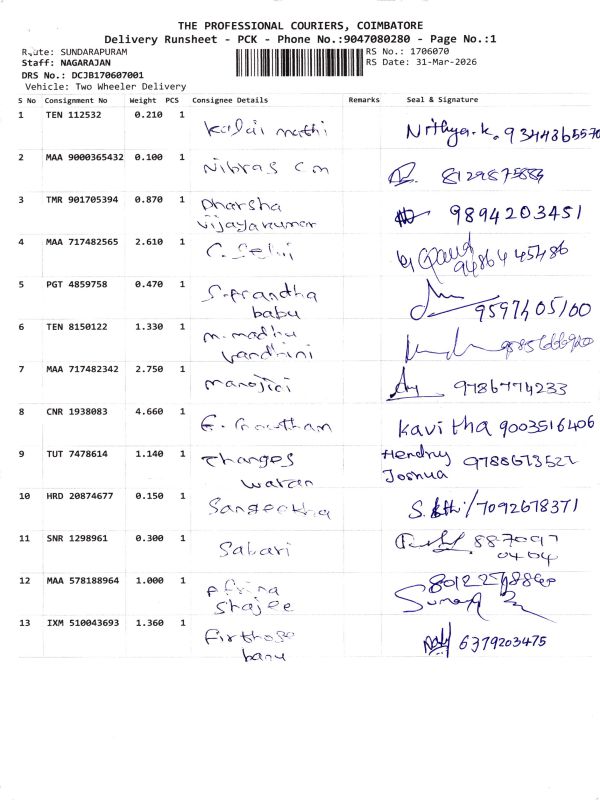 THE PROFESSIONAL COURIERS, COIMBATORE
Delivery Runsheet - PCK - Phone No.:9047080280 - Page No.:1
Route: SUNDARAPURAM RS No.: 1706070
Staff: NAGARAJAN RS Date: 31-Mar-2026
DRS No.: DCJB170607001
Vehicle: Two Wheeler Delivery
S No Consignment No Weight PCS Consignee Details Remarks Seal & Signature
1 TEN 112532 0.210 1
Kalai mathi Nithya.k. 9344365570
2 MAA 9000365432 0.100 1
Nibras C m
3 TMR 901705394 0.870 1 Dharsha
vijayakumar 9894203451
4 MAA 717482565 2.610 1 C. Selvi
9486445486
5 PGT 4859758 0.470 1
babu
6 TEN 8150122 1.330 1 m. madhu
vandhini
7 MAA 717482342 2.750 1
9786774233
8 CNR 1938083 4.660 1
E. Gowtham Kavitha 9003516406
9 TUT 7478614 1.140 1 Thanges Hendry
waran Joshua
10 HRD 20874677 0.150 1
Sangeetha 7092678371
11 SNR 1298961 0.300 1 887097
Sabari 0404
12 MAA 578188964 1.000 1 Afrina
Shajee
13 IXM 510043693 1.360 1 Firthose
banu 6379203475